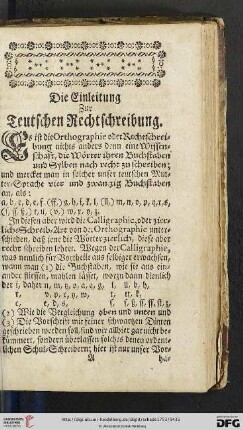 Die Einleitung
Zur
Teutschen Rechtschreibung.
Es ist die Orthographie oder Rechtschrei-
bung nichts anders denn eine Wissen-
schafft, die Wörter ihren Buchstaben
und Sylben nach recht zu schreiben;
und mercket man in solcher unser teutschen Mut-
ter-Sprache vier und zwanzig Buchstaben
an, als:
a, b, c, d, e, f, (ff,) g, h, i, k, l, (ll,) m, n, o, p, q, r, s,
(ſ, ſſ, ß,) t, u, (v,) w, x, y, z.
In diesen aber wird die Calligraphie, oder zier-
liche Schreib-Art von der Orthographie unter-
schieden, daß jene die Wörter zierlich, diese aber
recht schreiben lehret. Wegen der Calligraphie,
was nemlich für Vortheile aus selbiger erwachsen,
wann man (1) die Buchstaben, wie sie aus ein-
ander fliessen, machen lässet, worzu dann dienlich
der i, daher n, m,
(2) Wie die Vergleichung oben und unten und
(3) Die Vorschrift mit seiner schwartzen Dinten
geschrieben werden soll, sind wir allhier gar nicht be-
kümmert, sondern überlassen solches denen ordent-
lichen Schul-Schreibern; hier ist nur unser Vor-
A ha-